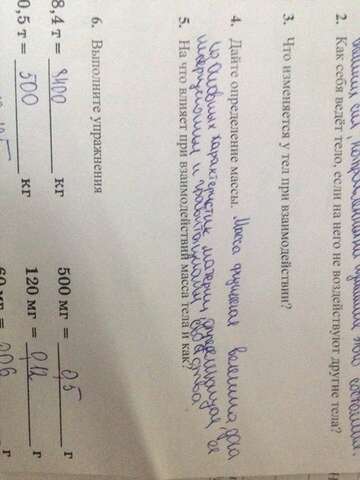 2. Как себя ведёт тело, если на него не воздействуют другие тела?
3. Что изменяется у тел при взаимодействии?
4. Дайте определение массы. Масса физическая величина, одна
из основных характеристик материи, определяющая её
инерционные и гравитационные свойства
5. На что влияет при взаимодействий масса тела и как?
6. Выполните упражнения
8,4 т = 8400 кг 500 мг = 0,5 г
0,5 т = 500 кг 120 мг = 0,12 г
60 мг = 0,06